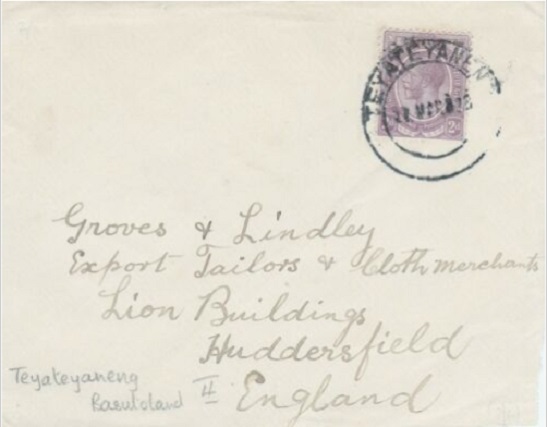 TEYATEYANEN
2d
Groves & Lindley
Export Tailors & Cloth merchants
Lion Buildings
Huddersfield
England
Teyateyaneng
Basutoland II